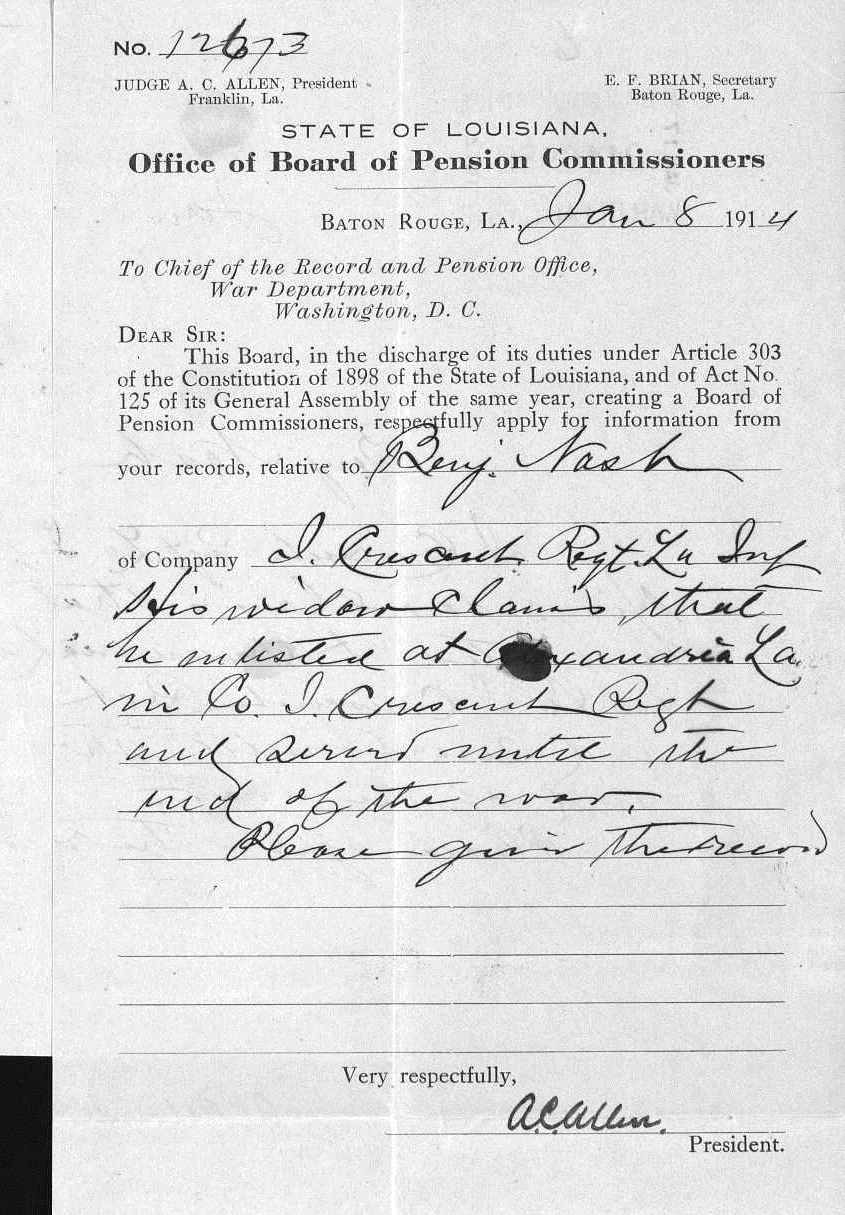 No. 12673
JUDGE A. C. ALLEN, President
Franklin, La.
E. F. BRIAN, Secretary
Baton Rouge, La.
STATE OF LOUISIANA,
Office of Board of Pension Commissioners
BATON ROUGE, LA., Jan 8 1914
To Chief of the Record and Pension Office,
War Department,
Washington, D. C.
DEAR SIR:
This Board, in the discharge of its duties under Article 303
of the Constitution of 1898 of the State of Louisiana, and of Act No.
125 of its General Assembly of the same year, creating a Board of
Pension Commissioners, respectfully apply for information from
your records, relative to Benj. Nash
of Company I. Crescent Regt. La Inf
His widow claims, that
he enlisted at Alexandria La.
in Co. I. Crescent Regt
and served until the
end of the war.
Please give the record
Very respectfully,
A.C. Allen.
President.